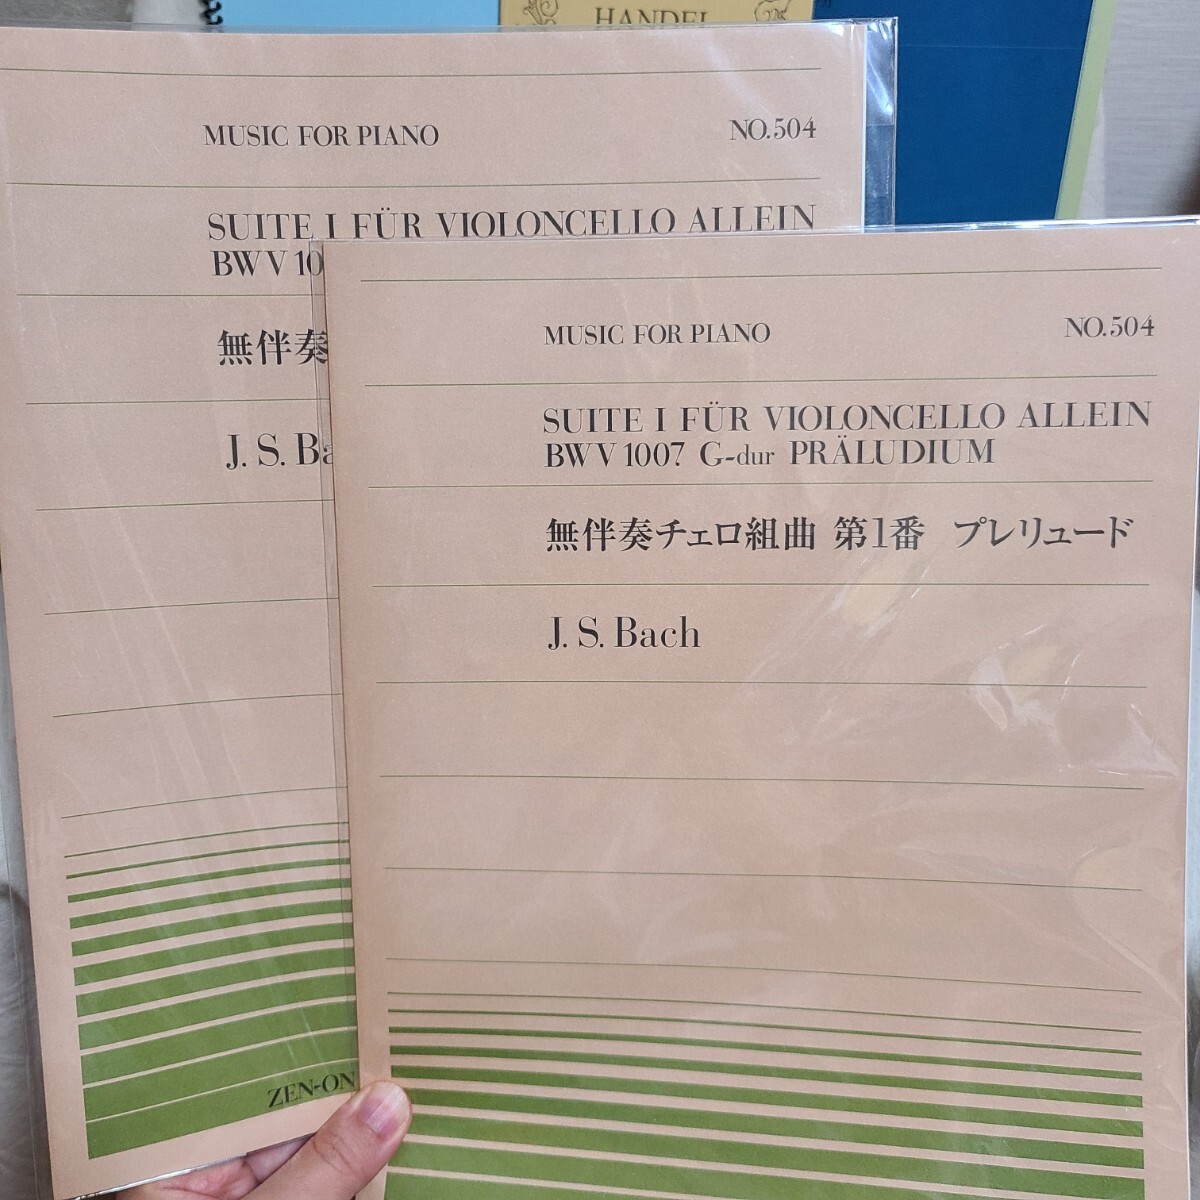 HANDEL
MUSIC FOR PIANO NO.504
SUITE I FÜR VIOLONCELLO ALLEIN
BWV 10
無伴奏
J. S. Ba
ZEN-ON
MUSIC FOR PIANO NO.504
SUITE I FÜR VIOLONCELLO ALLEIN
BWV 1007 G-dur PRÄLUDIUM
無伴奏チェロ組曲 第1番 プレリュード
J. S. Bach